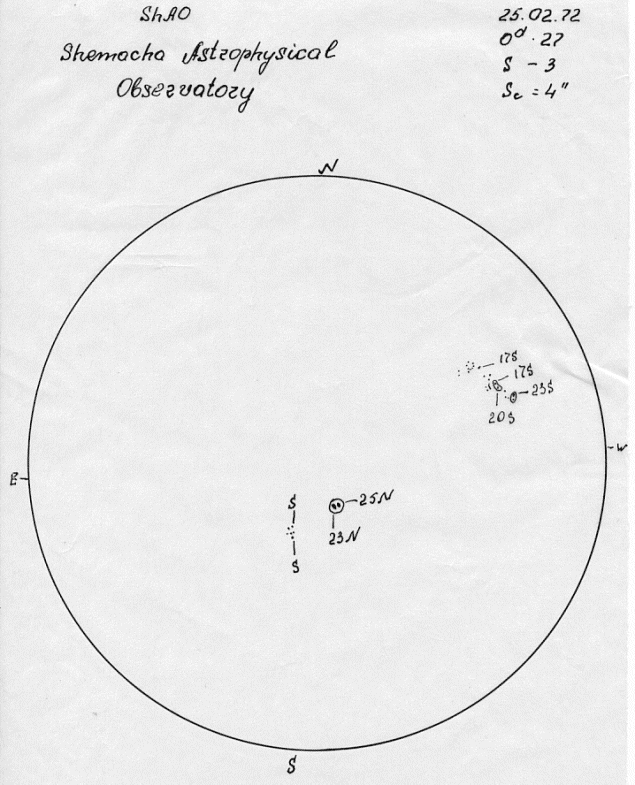 ShAO
Shemacha Astrophysical
Observatory
25.02.72
0ᵈ.27
S - 3
Sc = 4"
N
17S
17S
23S
20S
W
E
S
25N
23N
S
S